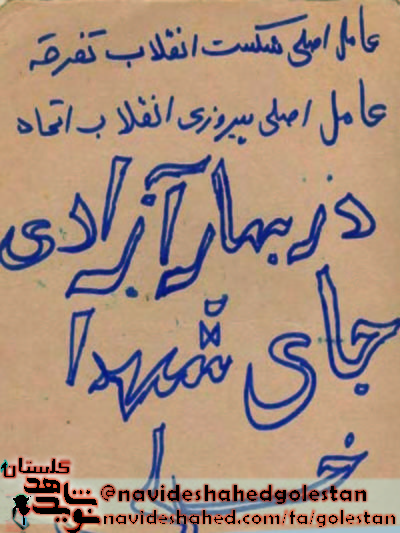 عامل اصلی شکست انقلاب تفرقه
عامل اصلی پیروزی انقلاب اتحاد
در بهار آزادی
جای شهدا
خالی
گلستان
نوید شاهد
@navideshahedgolestan
navideshahed.com/fa/golestan